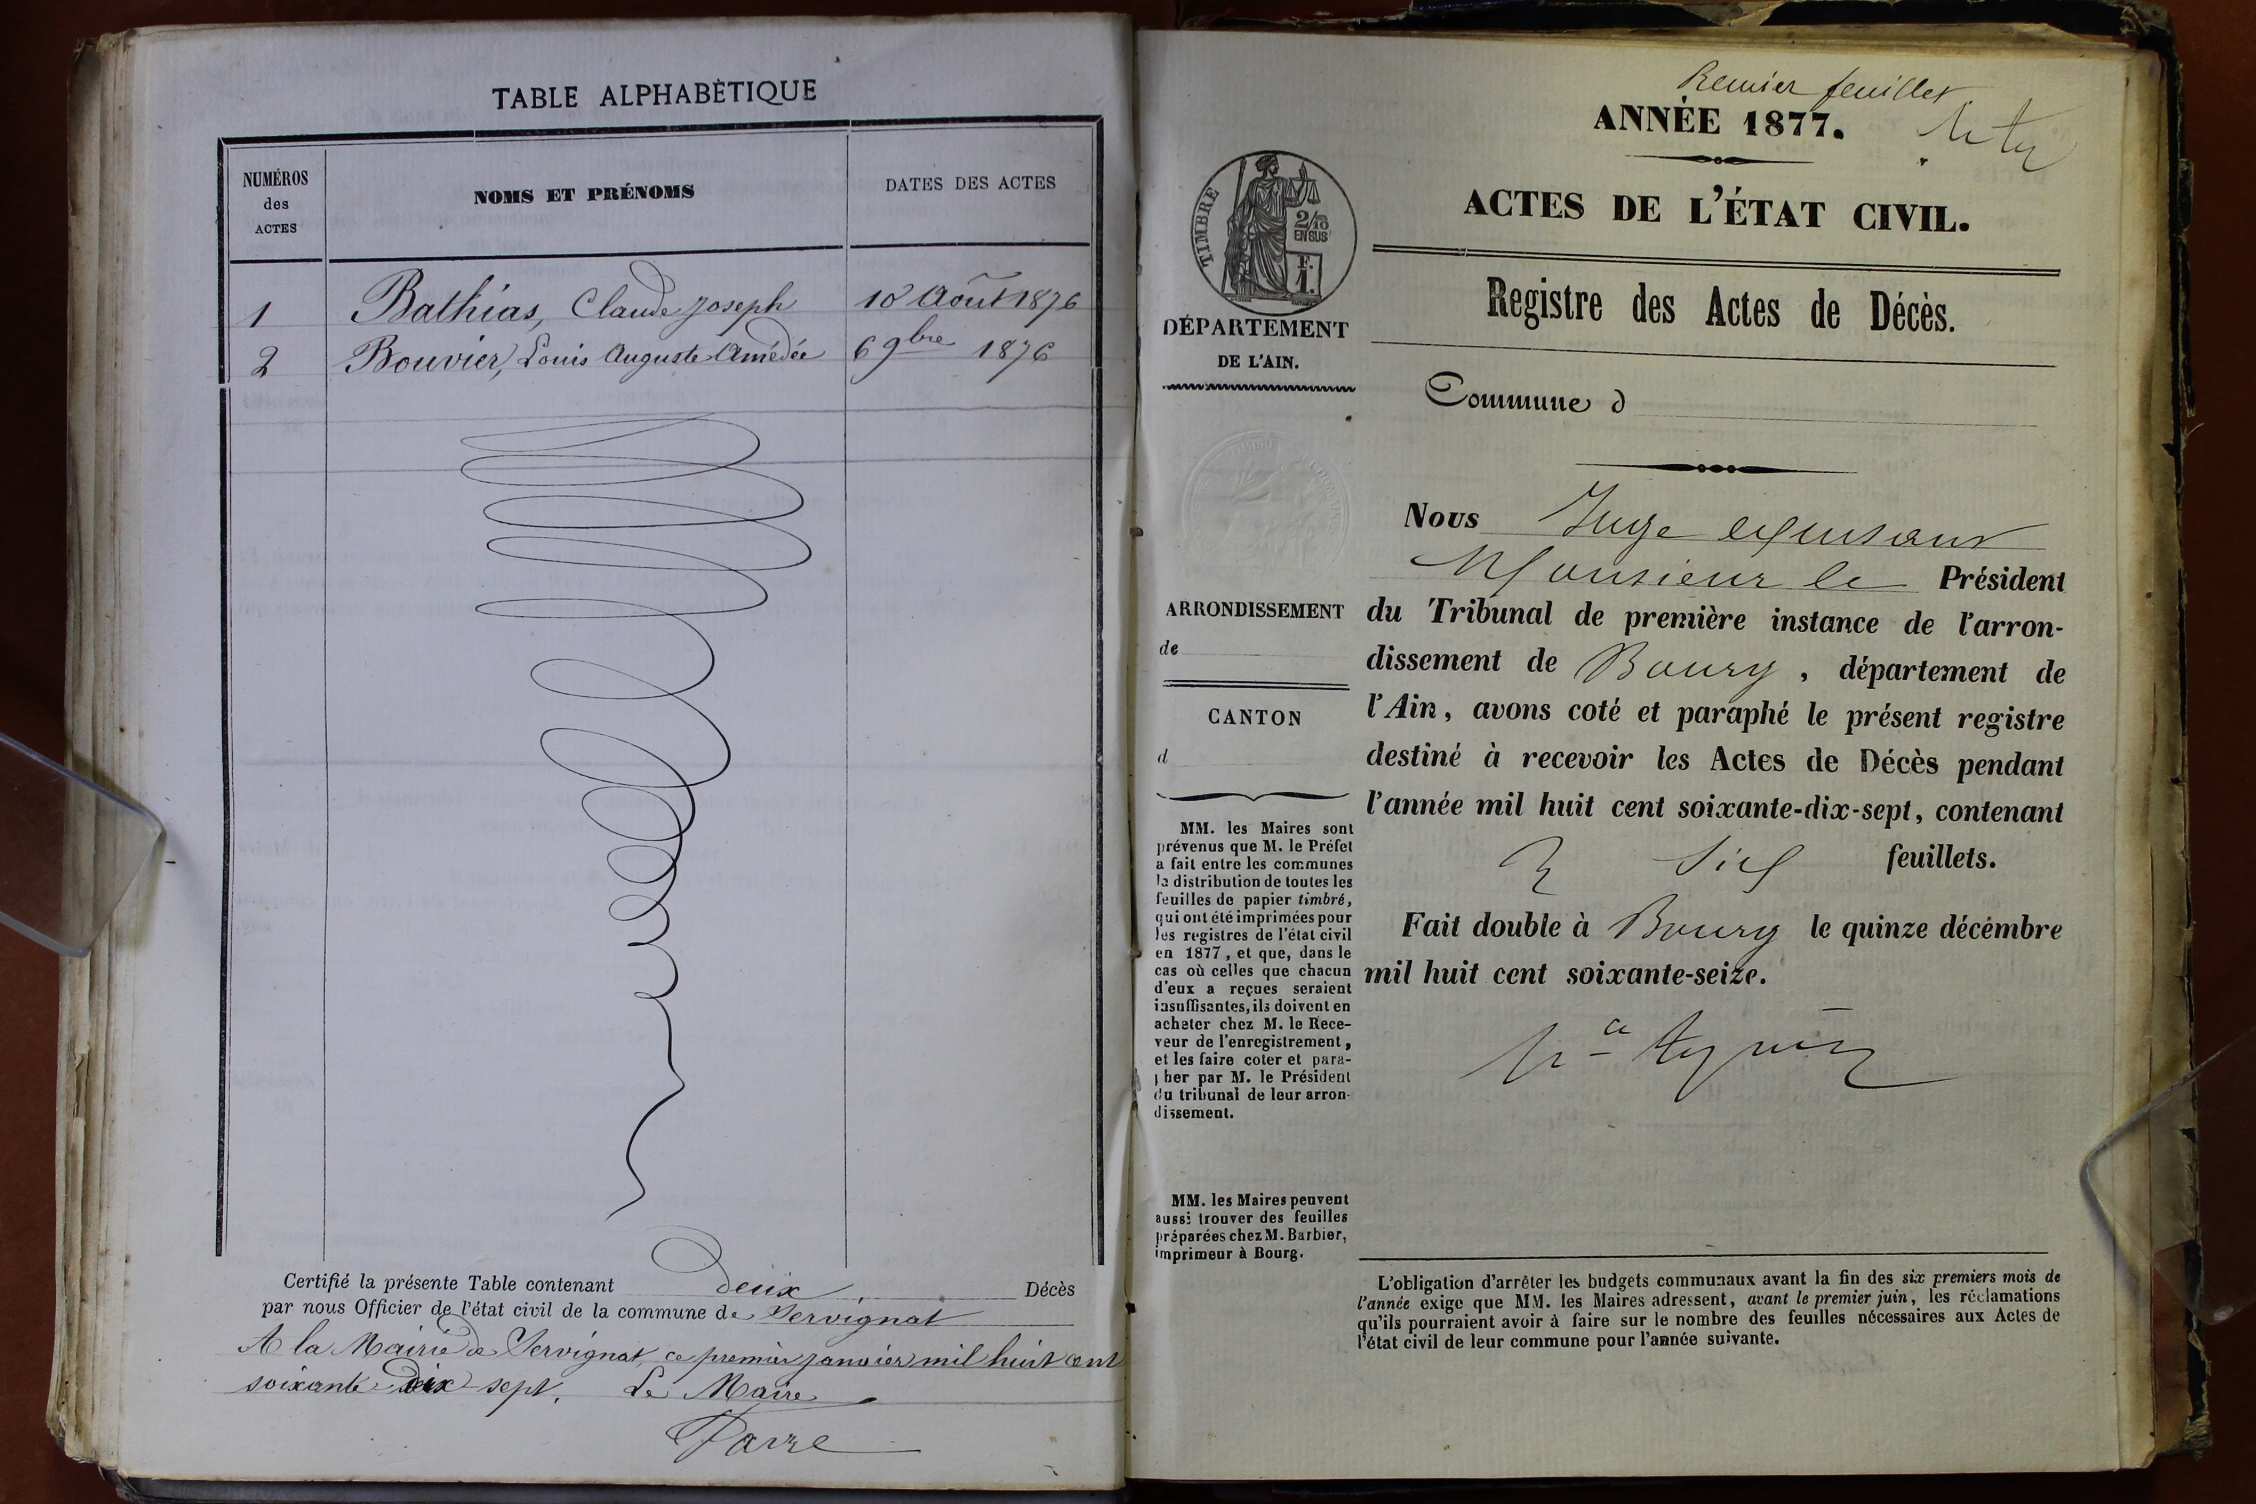 TABLE ALPHABÉTIQUE
NUMÉROS des ACTES
NOMS ET PRÉNOMS
DATES DES ACTES
1 Bathias, Claude Joseph 10 Août 1876
2 Bouvier, Louis Auguste Amédée 6 9bre 1876
Certifié la présente Table contenant deux Décès
par nous Officier de l'état civil de la commune de Servignat
A la Mairie de Servignat, ce premier janvier mil huit cent
soixante dix sept. Le Maire
Premier feuillet
ANNÉE 1877.
ACTES DE L'ÉTAT CIVIL.
Registre des Actes de Décès.
Commune d
TIMBRE
2/10
EN SUS
F.
1.
DÉPARTEMENT
DE L'AIN.
ARRONDISSEMENT
de
CANTON
d
MM. les Maires sont
prévenus que M. le Préfet
a fait entre les communes
la distribution de toutes les
feuilles de papier timbré,
qui ont été imprimées pour
les registres de l'état civil
en 1877, et que, dans le
cas où celles que chacun
d'eux a reçues seraient
insuffisantes, ils doivent en
acheter chez M. le Rece-
veur de l'enregistrement,
et les faire coter et para-
pher par M. le Président
du tribunal de leur arron-
dissement.
MM. les Maires peuvent
aussi trouver des feuilles
préparées chez M. Barbier,
imprimeur à Bourg.
Nous Juge
Monsieur le Président
du Tribunal de première instance de l'arron-
dissement de Bourg, département de
l'Ain, avons coté et paraphé le présent registre
destiné à recevoir les Actes de Décès pendant
l'année mil huit cent soixante-dix-sept, contenant
six feuillets.
Fait double à Bourg le quinze décémbre
mil huit cent soixante-seize.
L'obligation d'arrêter les budgets communaux avant la fin des six premiers mois de
l'année exige que MM. les Maires adressent, avant le premier juin, les réclamations
qu'ils pourraient avoir à faire sur le nombre des feuilles nécessaires aux Actes de
l'état civil de leur commune pour l'année suivante.